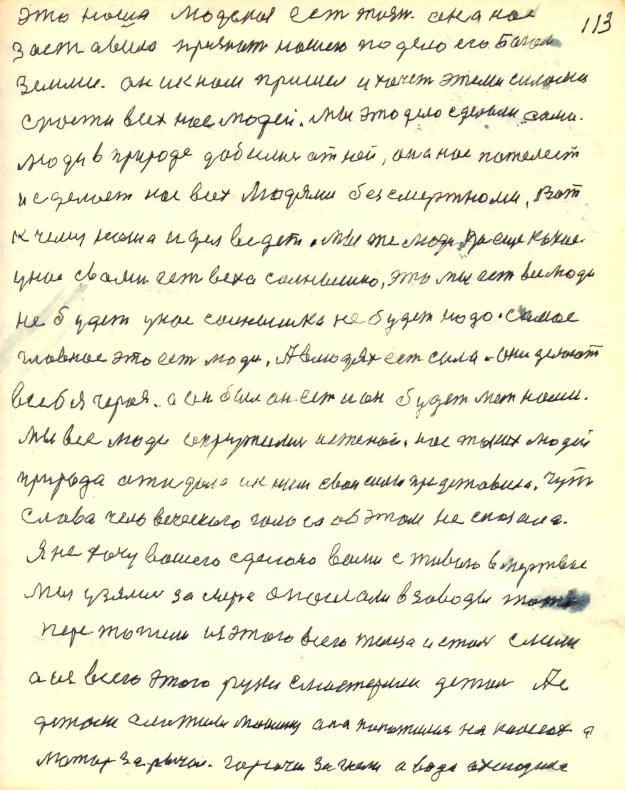 113
это наша Людская ест тяят. она нас
заставила принят нашею по дело его Богам
Земли. он и к нам пришел и хочет этеми силами
спости всех нас людей. Мы это дело сделали сами.
Люди в природе добилися от ней, она нас пожелеет
и сделоет нас всех Людями без смертноми, Вот
к чему наша идея ведет. Мы же люди
у нас с вами ест веха солнышко, это мы ест все люди
не будет у нас солнышка не будет надо. самое
главное это ест люди. А в людях ест сила. они делают
в себя героя. а он был он ест и он будет меж нами.
Мы все люди окружилися истеной. нас таких людей
природа и к ним свои силы представила. Чуть
слова человеческого голоса об этом не сказала.
Я не хочу вашего сделоно вами с живого в мертвые
Мы узяли за а послали в заводы
пере топили из этого всего железа и стал
а из всего этого руки смастерили детал Ас
детали смостили машину она покотилася на колесах а
матор зарычал. горючи зажгли а вода охлодила